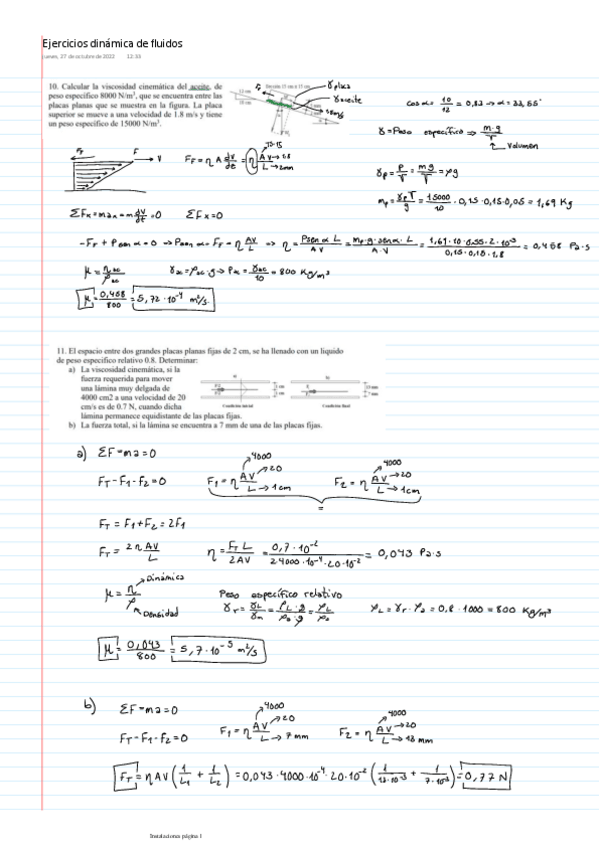 Ejercicios dinámica de fluidos
jueves, 27 de octubre de 2022 12:33
10. Calcular la viscosidad cinemática del aceite, de
peso específico 8000 N/m³, que se encuentra entre las
placas planas que se muestra en la figura. La placa
superior se mueve a una velocidad de 1.8 m/s y tiene
un peso específico de 15000 N/m³.
γ placa
γ aceite
cos α = 10/12 = 0,83 ⇒ α = 33,55°
γ = Peso específico ⇒ m·g/V
Volumen
F V
F_F = η A dv/dt = η A V/L
15·15
1,8
2mm
γp = P/V = mg/V = ρg
mp = γp V/g = 15000/10 · 0,15 · 0,15 · 0,05 = 1,69 Kg
ΣFx = max = m dv/dt = 0 ΣFx = 0
-Fr + P sen α = 0 ⇒ P sen α = Fr = η AV/L ⇒ η = P sen α L/AV = mp·g·sen α·L/A·V = 1,69·10·0,55·2·10⁻³/0,15·0,15·1,8 = 0,458 Pa·s
μ = ηac/ρac γac = ρac·g ⇒ ρac = γac/10 = 800 Kg/m³
μ = 0,458/800 = 5,72·10⁻⁴ m²/s.
11. El espacio entre dos grandes placas planas fijas de 2 cm, se ha llenado con un liquido
de peso especifico relativo 0.8. Determinar:
a) La viscosidad cinemática, si la
fuerza requerida para mover
una lámina muy delgada de
4000 cm2 a una velocidad de 20
cm/s es de 0.7 N, cuando dicha
lámina permanece equidistante de las placas fijas.
b) La fuerza total, si la lámina se encuentra a 7 mm de una de las placas fijas.
Condición inicial Condición final
a) ΣF = ma = 0
F_T - F₁ - F₂ = 0 F₁ = η AV/L F₂ = η AV/L
4000 20 1cm 4000 20 1cm
=
F_T = F₁ + F₂ = 2F₁
F_T = 2ηAV/L η = F_T L/2AV = 0,7·10⁻²/2·4000·10⁻⁴·20·10⁻² = 0,043 Pa·s
μ = η/ρ Dinámica Densidad
Peso específico relativo
γr = γL/γa = ρL·g/ρa·g = ρL/ρa ρL = γr·ρa = 0,8·1000 = 800 Kg/m³
μ = 0,043/800 = 5,7·10⁻⁵ m²/s
b) ΣF = ma = 0
F_T - F₁ - F₂ = 0 F₁ = η AV/L F₂ = η AV/L
4000 20 7 mm 4000 20 13 mm
F_T = ηAV (1/L₁ + 1/L₂) = 0,043·4000·10⁻⁴·20·10⁻² (1/13·10⁻³ + 1/7·10⁻³) = 0,77 N
Instalaciones página 1